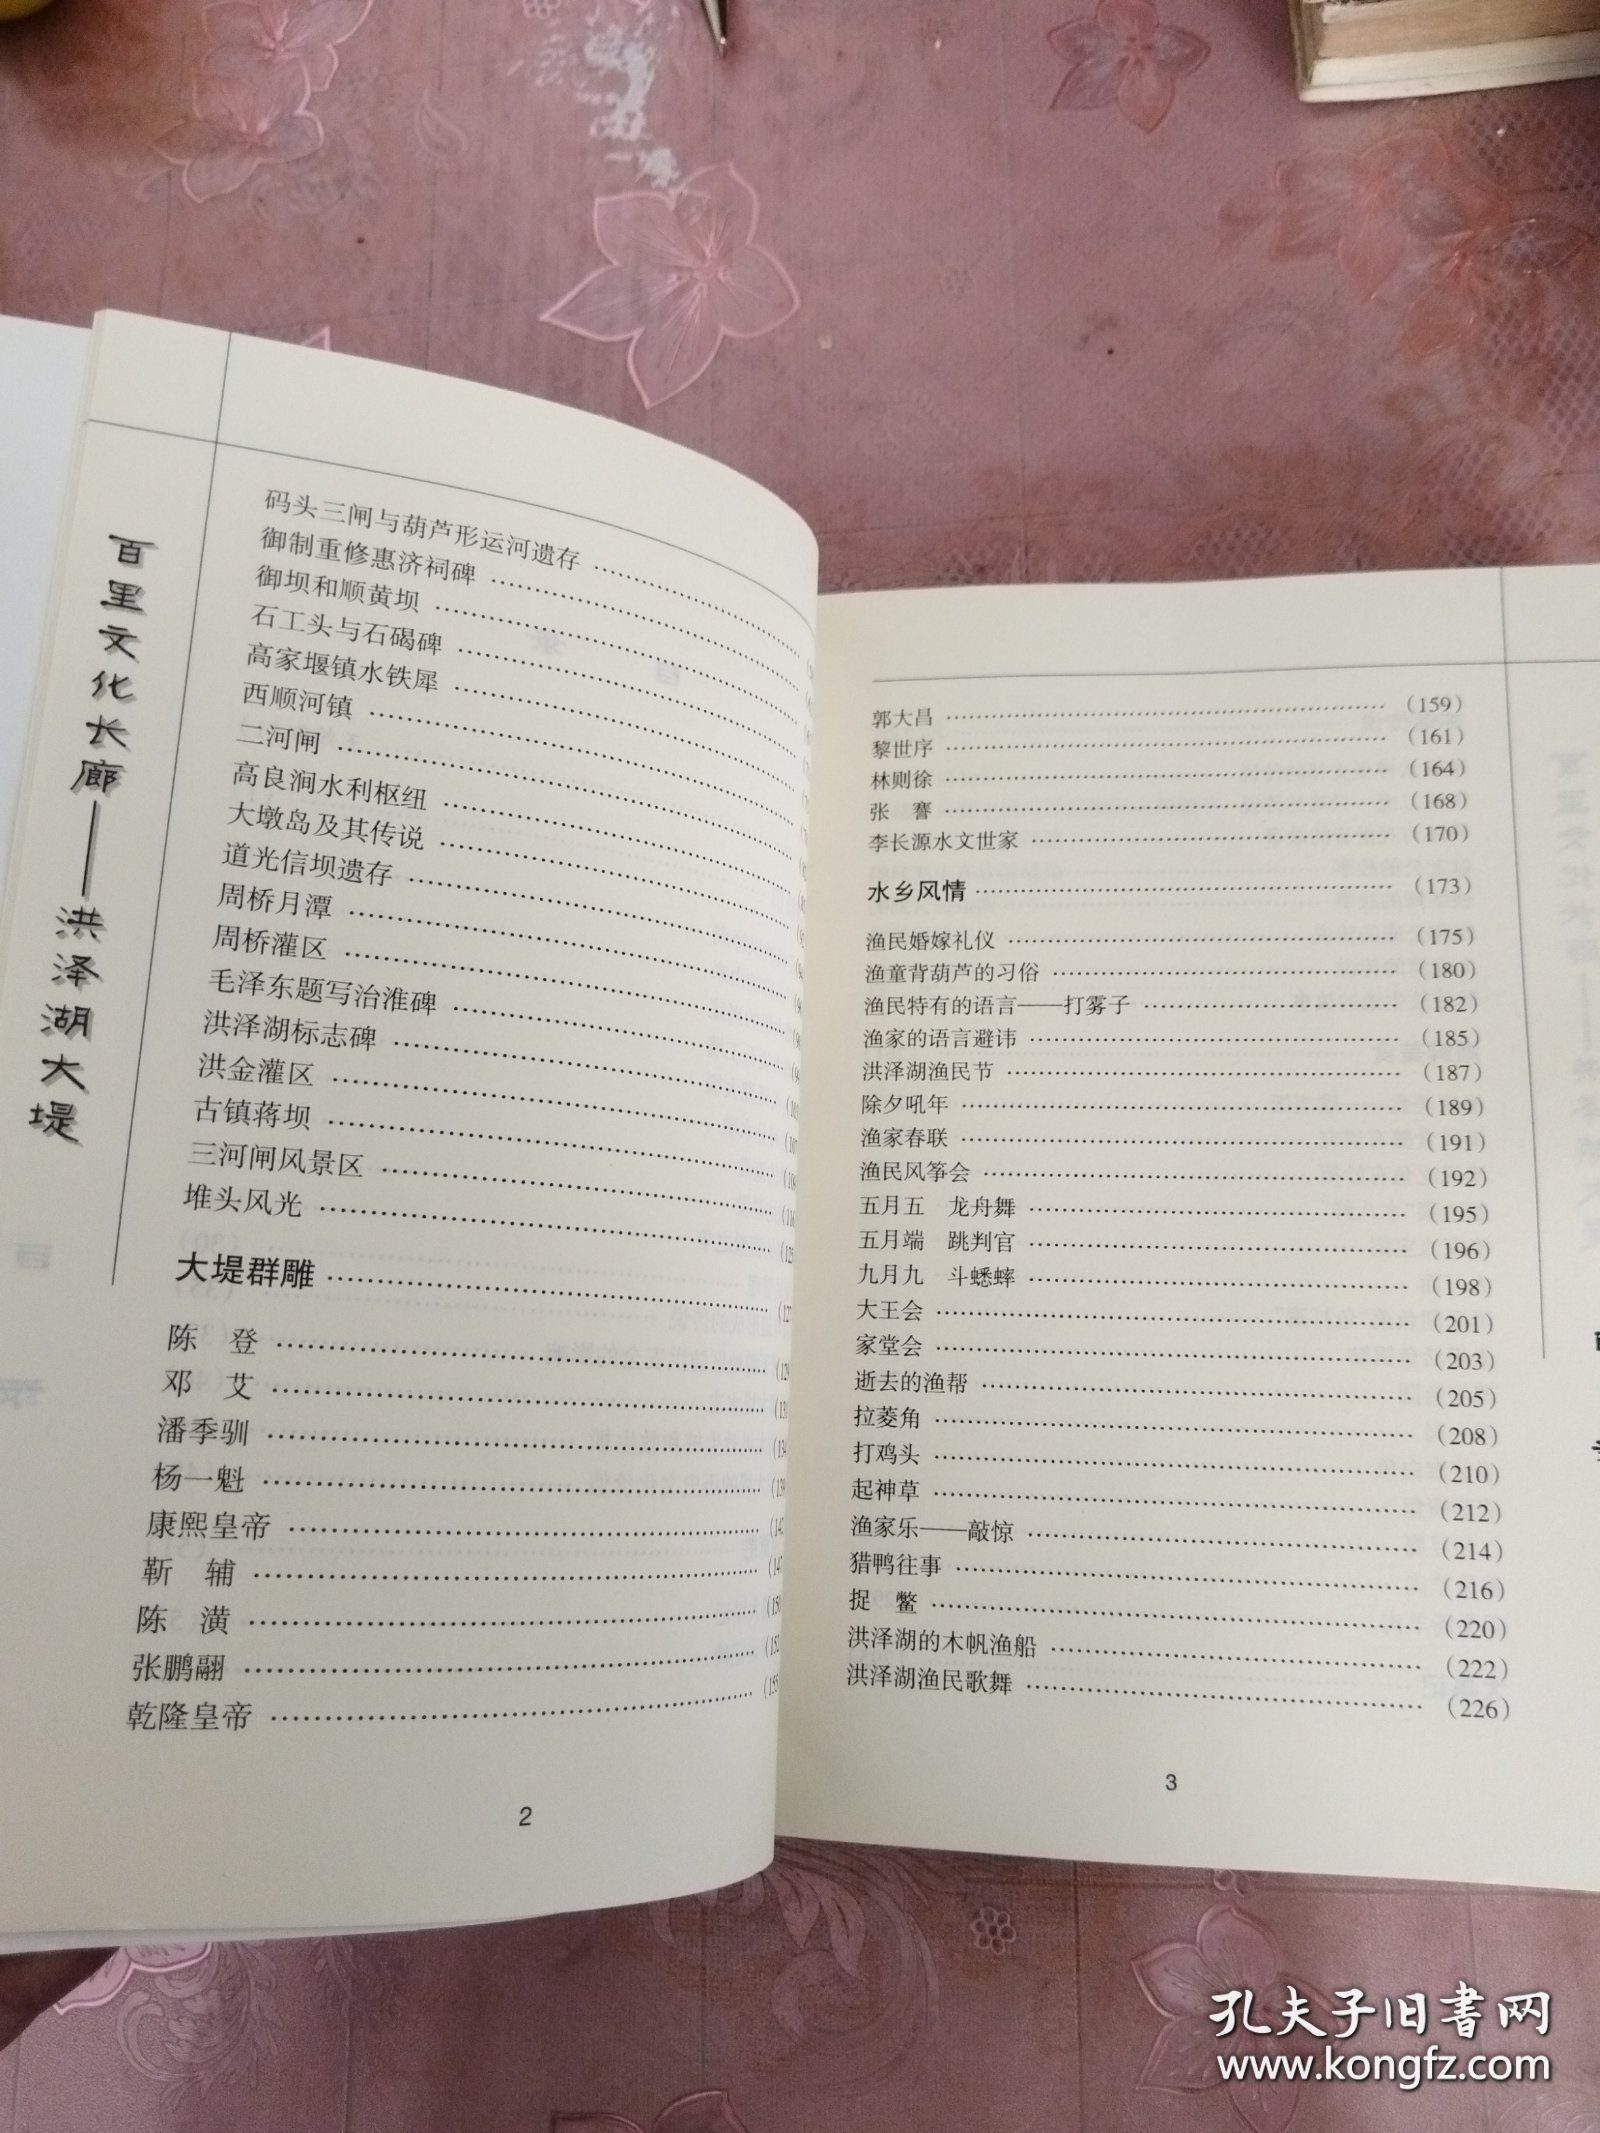 百里文化长廊——洪泽湖大堤
码头三闸与葫芦形运河遗存
御制重修惠济祠碑
御坝和顺黄坝
石工头与石碣碑
高家堰镇水铁犀
西顺河镇
二河闸
高良涧水利枢纽
大墩岛及其传说
道光信坝遗存
周桥月潭
周桥灌区
毛泽东题写治淮碑
洪泽湖标志碑
洪金灌区
古镇蒋坝
三河闸风景区
堆头风光
大堤群雕
陈　登
邓　艾
潘季驯
杨一魁
康熙皇帝
靳　辅
陈　潢
张鹏翮
乾隆皇帝
2
郭大昌 (159)
黎世序 (161)
林则徐 (164)
张　謇 (168)
李长源水文世家 (170)
水乡风情 (173)
渔民婚嫁礼仪 (175)
渔童背葫芦的习俗 (180)
渔民特有的语言——打雾子 (182)
渔家的语言避讳 (185)
洪泽湖渔民节 (187)
除夕吼年 (189)
渔家春联 (191)
渔民风筝会 (192)
五月五　龙舟舞 (195)
五月端　跳判官 (196)
九月九　斗蟋蟀 (198)
大王会 (201)
家堂会 (203)
逝去的渔帮 (205)
拉菱角 (208)
打鸡头 (210)
起神草 (212)
渔家乐——敲惊 (214)
猎鸭往事 (216)
捉　鳖 (220)
洪泽湖的木帆渔船 (222)
洪泽湖渔民歌舞 (226)
3
孔夫子旧书网
www.kongfz.com